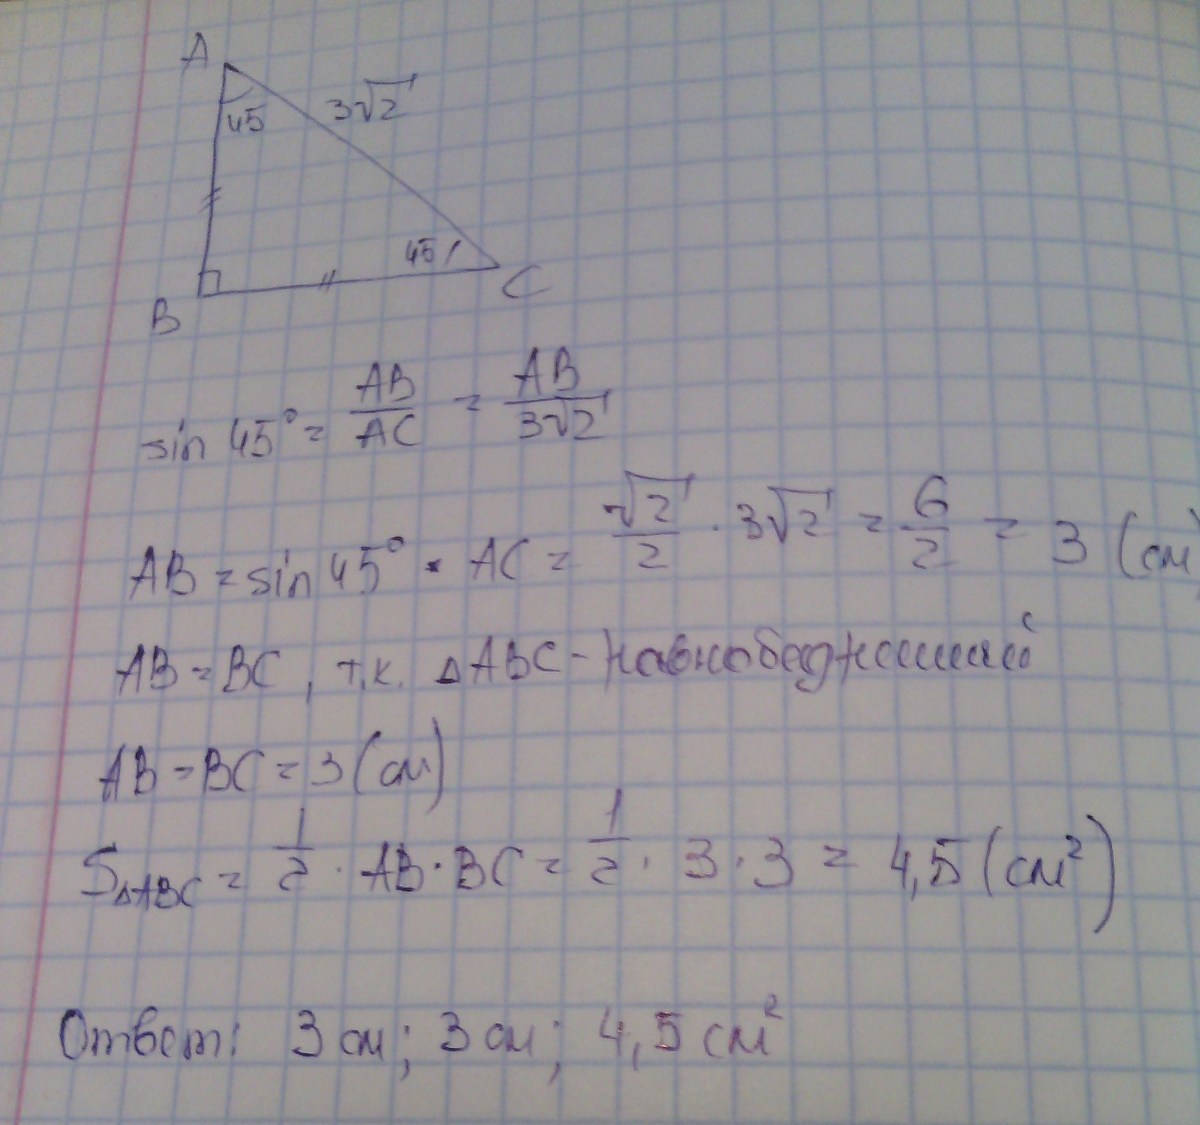 A
45
3√2
45
B
C
sin 45° = AB/AC = AB/3√2
AB = sin 45° · AC = √2/2 · 3√2 = 6/2 = 3 (см)
AB = BC, т.к. △ABC - равнобедренный
AB = BC = 3 (см)
S△ABC = 1/2 · AB · BC = 1/2 · 3 · 3 = 4,5 (см²)
Ответ: 3 см; 3 см; 4,5 см²